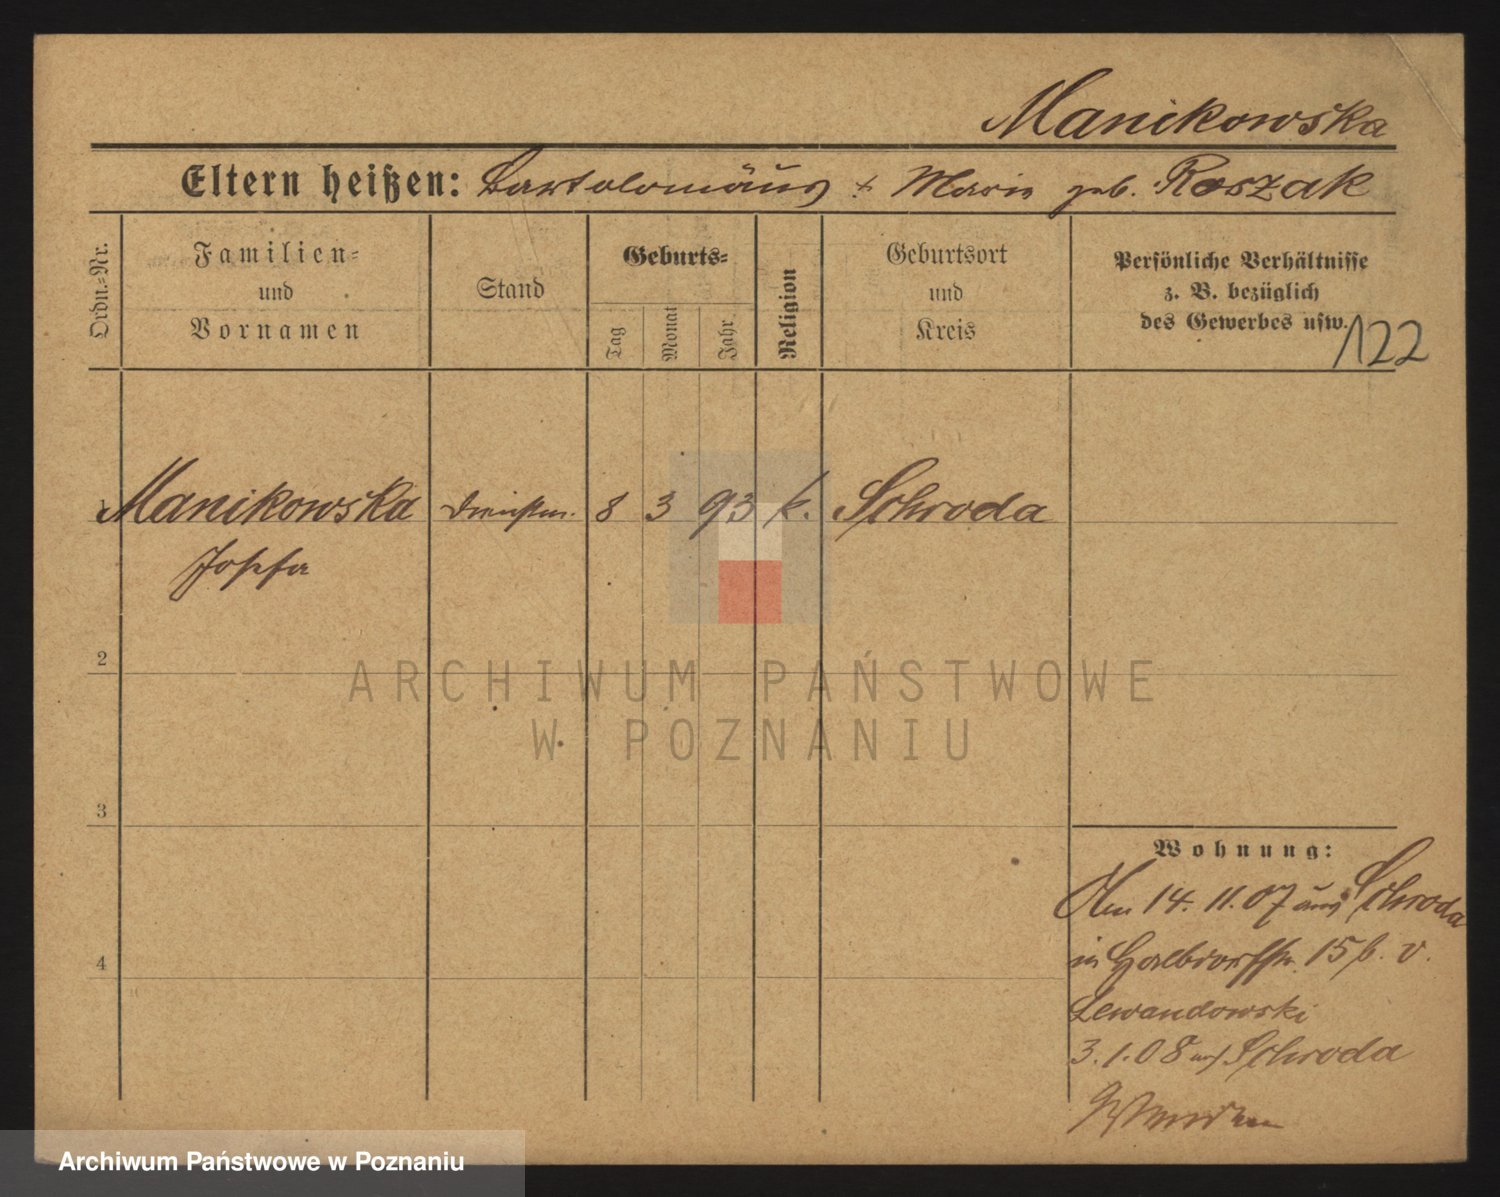 Manikowska
Eltern heißen: Bartolomäus + Marie geb. Roszak
Ordn.-Nr.
Familien-
und
Vornamen
Stand
Geburts-
Tag
Monat
Jahr
Religion
Geburtsort
und
Kreis
Persönliche Verhältnisse
z. B. bezüglich
des Gewerbes usw.
122
1 Manikowska Dienstm. 8 3 93 k. Schroda
Josefa
2
ARCHIWUM PAŃSTWOWE
W POZNANIU
3
Wohnung:
Am 14. 11. 07 aus Schroda
in Halbdorfstr. 15 b. v.
4
Lewandowski
3. 1. 08 n/ Schroda
Archiwum Państwowe w Poznaniu